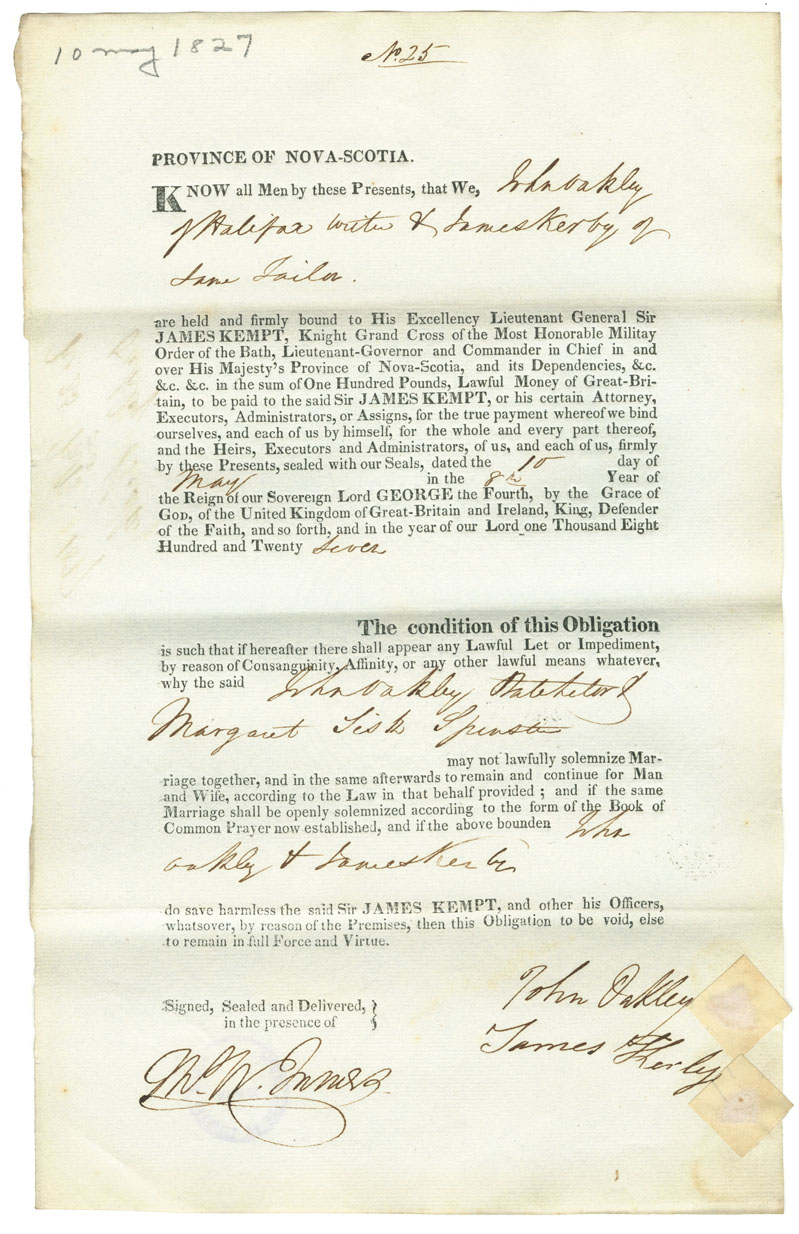 10 may 1827
No. 25
PROVINCE OF NOVA-SCOTIA.
KNOW all Men by these Presents, that We, John Oakley
of Halifax writer & James Kerby of
same Tailor.
are held and firmly bound to His Excellency Lieutenant General Sir
JAMES KEMPT, Knight Grand Cross of the Most Honorable Militay
Order of the Bath, Lieutenant-Governor and Commander in Chief in and
over His Majesty's Province of Nova-Scotia, and its Dependencies, &c.
&c. &c. in the sum of One Hundred Pounds, Lawful Money of Great-Bri-
tain, to be paid to the said Sir JAMES KEMPT, or his certain Attorney,
Executors, Administrators, or Assigns, for the true payment whereof we bind
ourselves, and each of us by himself, for the whole and every part thereof,
and the Heirs, Executors and Administrators, of us, and each of us, firmly
by these Presents, sealed with our Seals, dated the 10 day of
May in the 8th Year of
the Reign of our Sovereign Lord GEORGE the Fourth, by the Grace of
GOD, of the United Kingdom of Great-Britain and Ireland, King, Defender
of the Faith, and so forth, and in the year of our Lord one Thousand Eight
Hundred and Twenty Seven
The condition of this Obligation
is such that if hereafter there shall appear any Lawful Let or Impediment,
by reason of Consanguinity, Affinity, or any other lawful means whatever,
why the said John Oakley Batchelor &
Margaret Spinster
may not lawfully solemnize Mar-
riage together, and in the same afterwards to remain and continue for Man
and Wife, according to the Law in that behalf provided ; and if the same
Marriage shall be openly solemnized according to the form of the Book of
Common Prayer now established, and if the above bounden John
oakley & James Kerby
do save harmless the said Sir JAMES KEMPT, and other his Officers,
whatsover, by reason of the Premises, then this Obligation to be void, else
to remain in full Force and Virtue.
Signed, Sealed and Delivered,
in the presence of
John Oakley
James Kerby